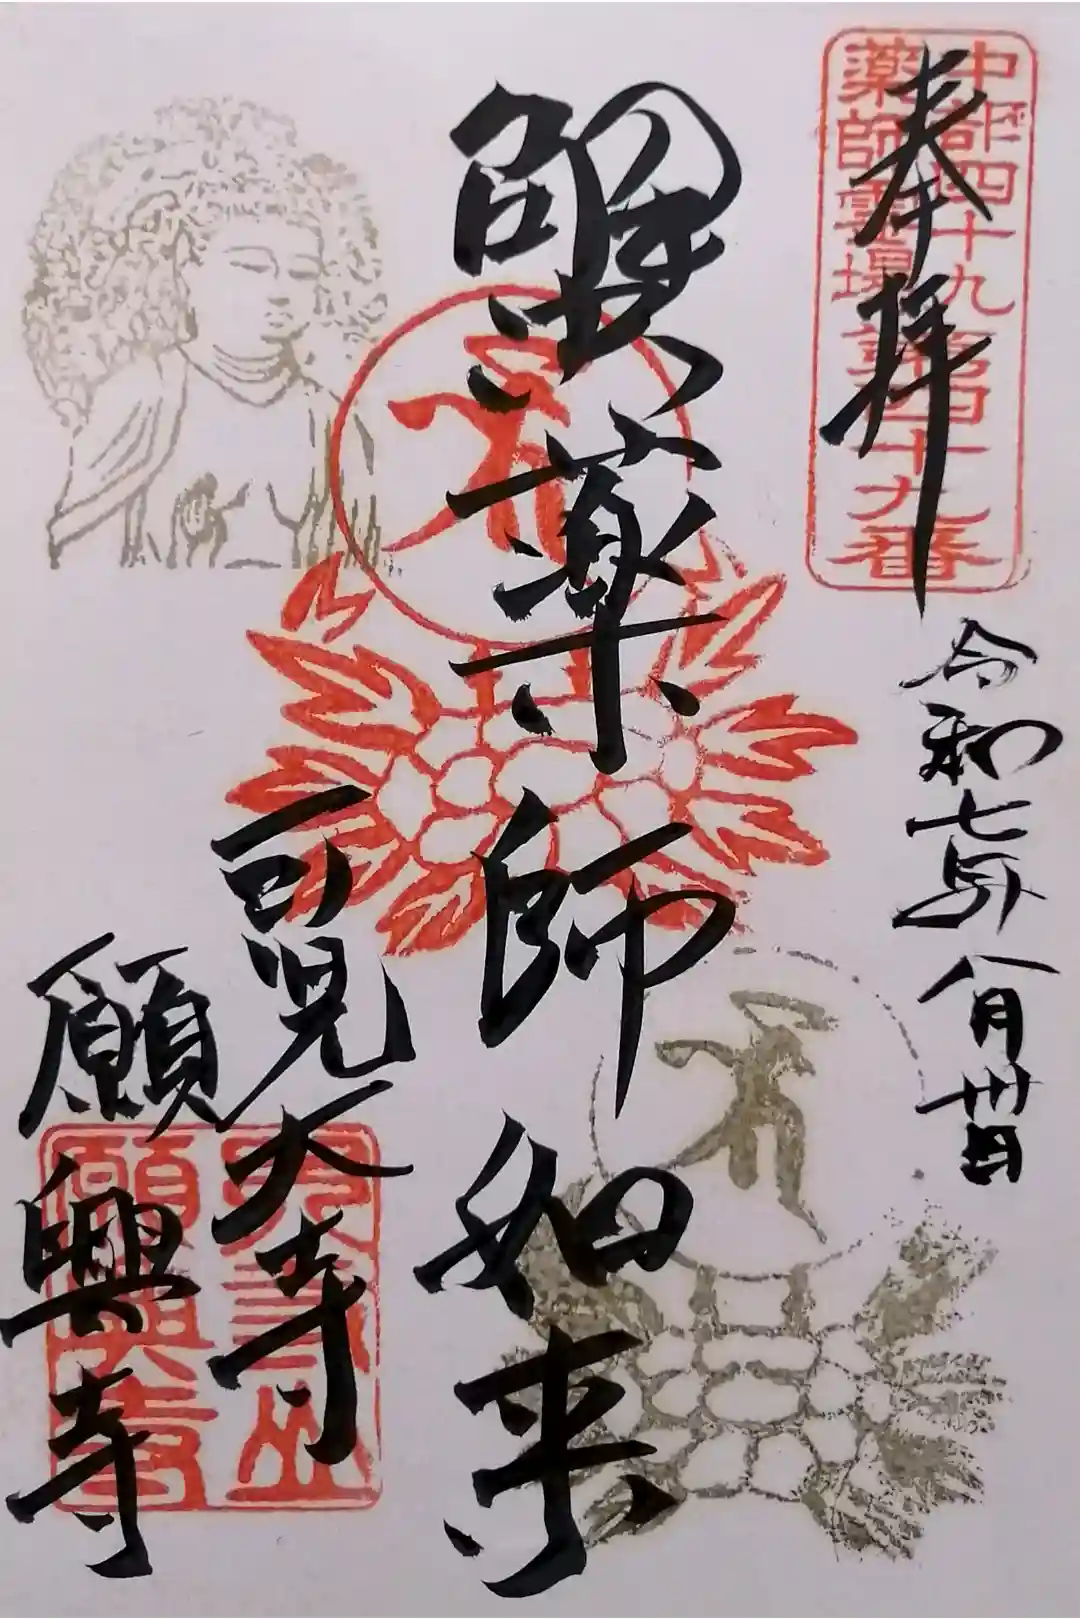 奉拝
中部四十九
薬師霊場
第四十九番
令和七年八月卅日
蟹薬師如来
可児大寺
願興寺
大寺山
願興寺